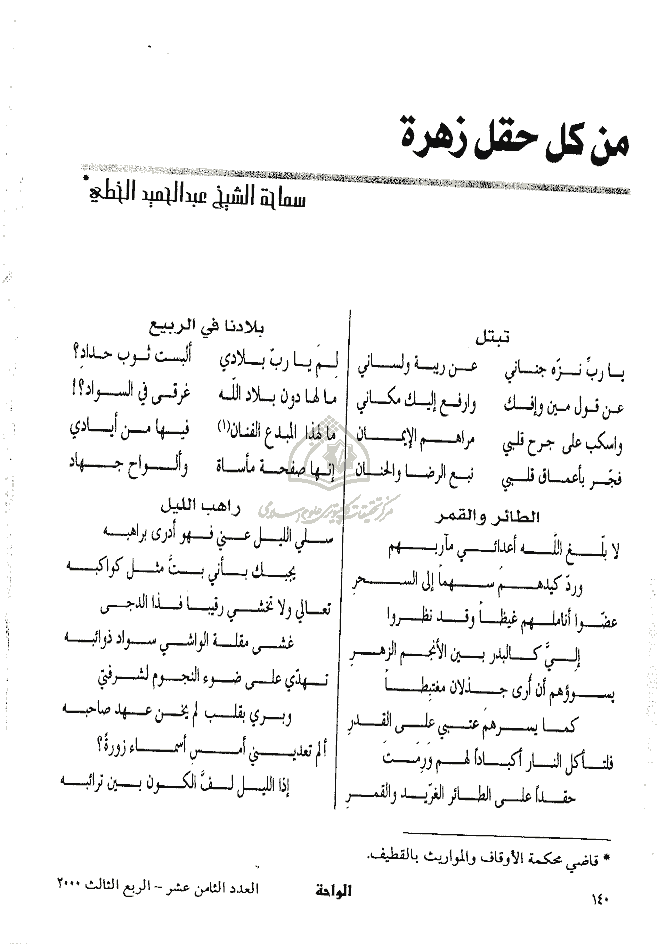 من كل حقل زهرة
سماحة الشيخ عبدالحميد الخطي*
تبتل
يا ربِّ نزّه جناني عن ريبة ولساني
عن قول مين وإفك وارفع إليك مكاني
واسكب على جرح قلبي مراهم الإيمان
فجّر بأعماق قلبي نبع الرضا والحنان
الطائر والقمر
لا بلّغ اللّه أعدائي مآربهم
وردّ كيدهم سهماً إلى السحرِ
عضّوا أناملهم غيظاً وقد نظروا
إليَّ كالبدر بين الأنجم الزهرِ
يسوؤهم أن أرى جذلان مغتبطاً
كما يسرهم عتبي على القدرِ
فلتأكل النار أكباداً لهم وَرِمَت
حقداً على الطائر الغرّيد والقمرِ
بلادنا في الربيع
لمَ يا ربّ بلادي ألبست ثوب حدادِ؟
ما لها دون بلاد اللّه غرقى في السواد؟!
ما لهذا المبدع الفنان(١) فيها من أيادي
إنها صفحة مأساة وألواح جهاد
راهب الليل
سلي الليل عني فهو أدرى براهبه
يجبك بأني بتَّ مثل كواكبه
تعالي ولا تخشي رقيبا فذا الدجى
غشى مقلة الواشي سواد ذوائبه
تهدّي على ضوء النجوم لشرفتي
وبري بقلب لم يخن عهد صاحبه
ألم تعديني أمسِ أسماء زورةً؟
إذا الليل لفَّ الكون بين ترائبه
* قاضي محكمة الأوقاف والمواريث بالقطيف.
١٤٠ الواحة العدد الثامن عشر – الربع الثالث ٢٠٠٠